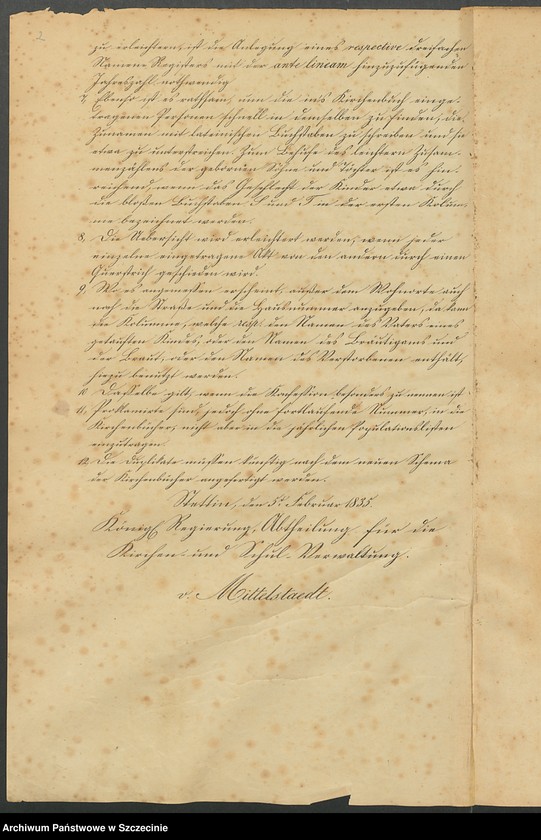 2
zu erleichtern, ist die Anlegung eines respective dreifachen
Namens-Registers mit der ante lineam hinzuzufügenden
Jahreszahl nothwendig
7, Ebenso ist es rathsam, um die in's Kirchenbuch einge-
tragenen Personen schnell in demselben zu finden, die
Zunamen mit lateinischen Buchstaben zu schreiben und sie
etwa zu unterstreichen. Zum Behufe des leichtern Zusam-
menzählens der gebornen Söhne und Töchter ist es hin-
reichend, wenn das Geschlecht der Kinder etwa durch
die bloßen Buchstaben S und T in der ersten Kolum-
ne bezeichnet werden.
8, Die Uebersicht wird erleichtert werden, wenn jeder
einzelne eingetragene Akt von den andern durch einen
Querstrich geschieden wird.
9, Wo es angemessen erscheint, außer dem Wohnorte auch
noch die Straße und die Hausnummer anzugeben, da kann
die Kolumne, welche resp. den Namen des Vaters eines
getauften Kindes, oder den Namen des Bräutigams und
der Braut, oder den Namen des Verstorbenen enthält,
hiezu benützt werden.
10, Dasselbe gilt, wenn die Konfession besonders zu nennen ist
11, Proklamirte sind, jedoch ohne fortlaufende Nummer, in die
Kirchenbücher, nicht aber in die jährlichen Populationslisten
einzutragen
12, Die Duplikate müssen künftig nach dem neuen Schema
der Kirchenbücher angefertigt werden.
Stettin, den 5t Februar 1835.
Königl Regierung, Abtheilung für die
Kirchen- und Schul-Verwaltung.
v. Mittelstaedt.
Archiwum Państwowe w Szczecinie